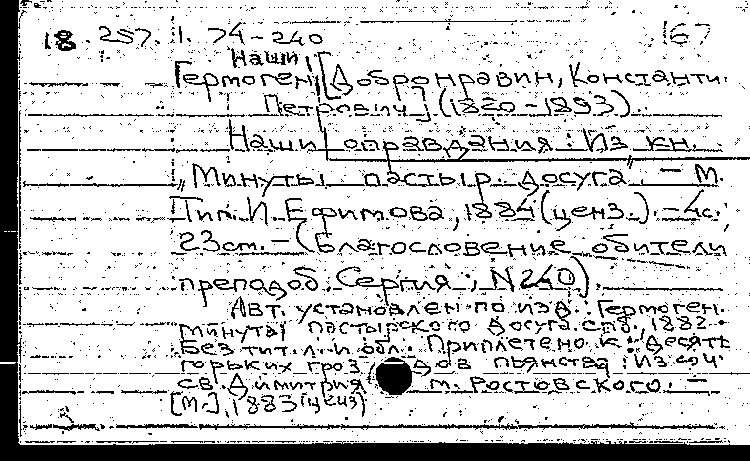 18.257.1.74-240 167
Наши
Гермоген [Добронравин, Константин
Петрович] (1820-1893).
Наши оправдания: Из кн.
"Минуты пастыр. досуга". - М.
Тип. И. Ефимова, 1884 (ценз.). - 4с.;
23см. - (Благословение обители
преподоб. Сергия; N240).
Авт. установлен по изд.: Гермоген.
Минуты пастырского досуга. Спб., 1882.
Без тит. л. и обл. Приплетено к: Десять
горьких гроздов пьянства: Из соч.
св. Димитрия м. Ростовского. -
[М.], 1883 (ценз)